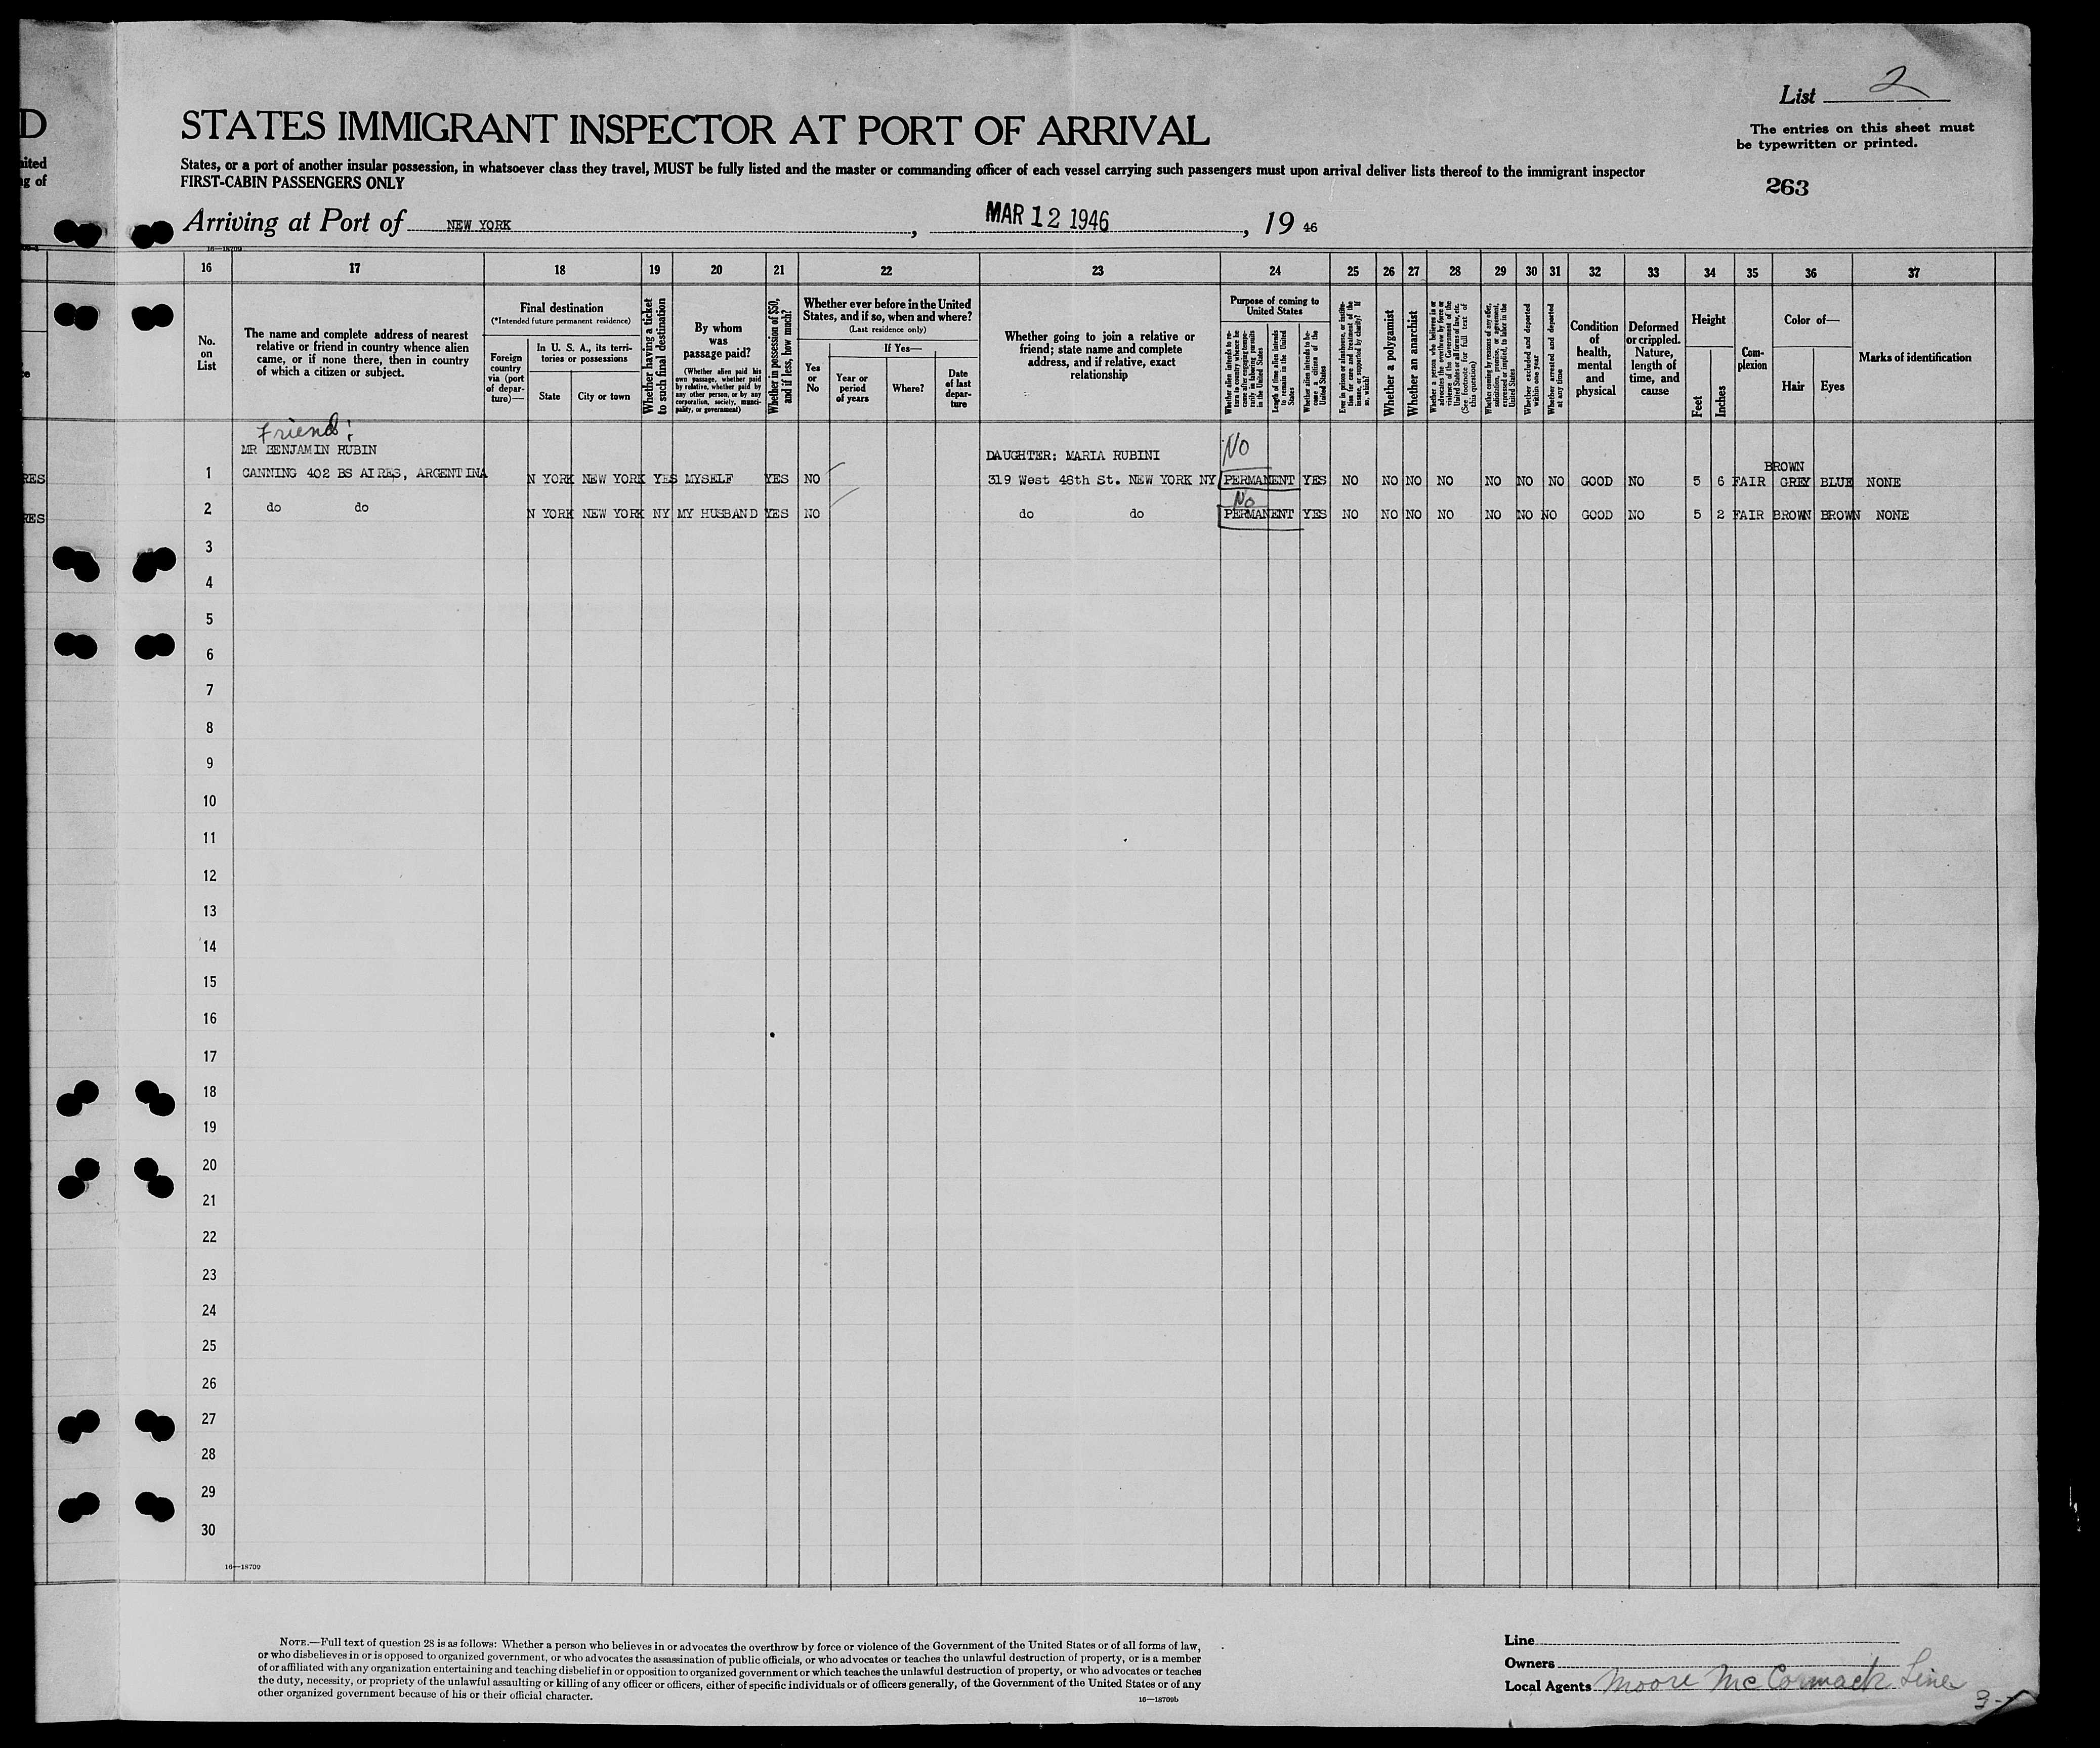 List 2
The entries on this sheet must
be typewritten or printed.
263
D
STATES IMMIGRANT INSPECTOR AT PORT OF ARRIVAL
States, or a port of another insular possession, in whatsoever class they travel, MUST be fully listed and the master or commanding officer of each vessel carrying such passengers must upon arrival deliver lists thereof to the immigrant inspector
FIRST-CABIN PASSENGERS ONLY
Arriving at Port of NEW YORK, MAR 12 1946, 19 46
16—18709
16 17 18 19 20 21 22 23 24 25 26 27 28 29 30 31 32 33 34 35 36 37
No. on List
The name and complete address of nearest relative or friend in country whence alien came, or if none there, then in country of which a citizen or subject.
Final destination
(*Intended future permanent residence)
Foreign country via (port of departure)—
In U. S. A., its territories or possessions
State
City or town
Whether having a ticket to such final destination
By whom was passage paid?
(Whether alien paid his own passage, whether paid by relative, whether paid by any other person, or by any corporation, society, municipality, or government)
Whether in possession of $50, and if less, how much?
Whether ever before in the United States, and if so, when and where?
(Last residence only)
Yes or No
If Yes—
Year or period of years
Where?
Date of last departure
Whether going to join a relative or friend; state name and complete address, and if relative, exact relationship
Purpose of coming to United States
Whether alien intends to return to country whence he came after engaging temporarily in laboring pursuits in the United States
Length of time alien intends to remain in the United States
Whether alien intends to become a citizen of the United States
Ever in prison or almshouse, or institution for care and treatment of the insane, or supported by charity? If so, which?
Whether a polygamist
Whether an anarchist
Whether a person who believes in or advocates the overthrow by force or violence of the Government of the United States or all forms of law, etc. (See footnote for full text of this question)
Whether coming by reasons of any offer, solicitation, promise, or agreement, expressed or implied, to labor in the United States
Whether excluded and deported within one year
Whether arrested and deported at any time
Condition of health, mental and physical
Deformed or crippled. Nature, length of time, and cause
Height
Feet
Inches
Complexion
Color of—
Hair
Eyes
Marks of identification
Friend:
MR BENJAMIN RUBIN
DAUGHTER: MARIA RUBINI
No
BROWN
1 CANNING 402 BS AIRES, ARGENTINA N YORK NEW YORK YES MYSELF YES NO 319 West 48th St. NEW YORK NY PERMANENT YES NO NO NO NO NO NO NO GOOD NO 5 6 FAIR GREY BLUE NONE
No
2 do do N YORK NEW YORK NY MY HUSBAND YES NO do do PERMANENT YES NO NO NO NO NO NO NO GOOD NO 5 2 FAIR BROWN BROWN NONE
3
4
5
6
7
8
9
10
11
12
13
14
15
16
17
18
19
20
21
22
23
24
25
26
27
28
29
30
16—18709
NOTE.—Full text of question 28 is as follows: Whether a person who believes in or advocates the overthrow by force or violence of the Government of the United States or of all forms of law,
or who disbelieves in or is opposed to organized government, or who advocates the assassination of public officials, or who advocates or teaches the unlawful destruction of property, or is a member
of or affiliated with any organization entertaining and teaching disbelief in or opposition to organized government or which teaches the unlawful destruction of property, or who advocates or teaches
the duty, necessity, or propriety of the unlawful assaulting or killing of any officer or officers, either of specific individuals or of officers generally, of the Government of the United States or of any
other organized government because of his or their official character.
16—18709b
Line
Owners
Local Agents Moore McCormack Line